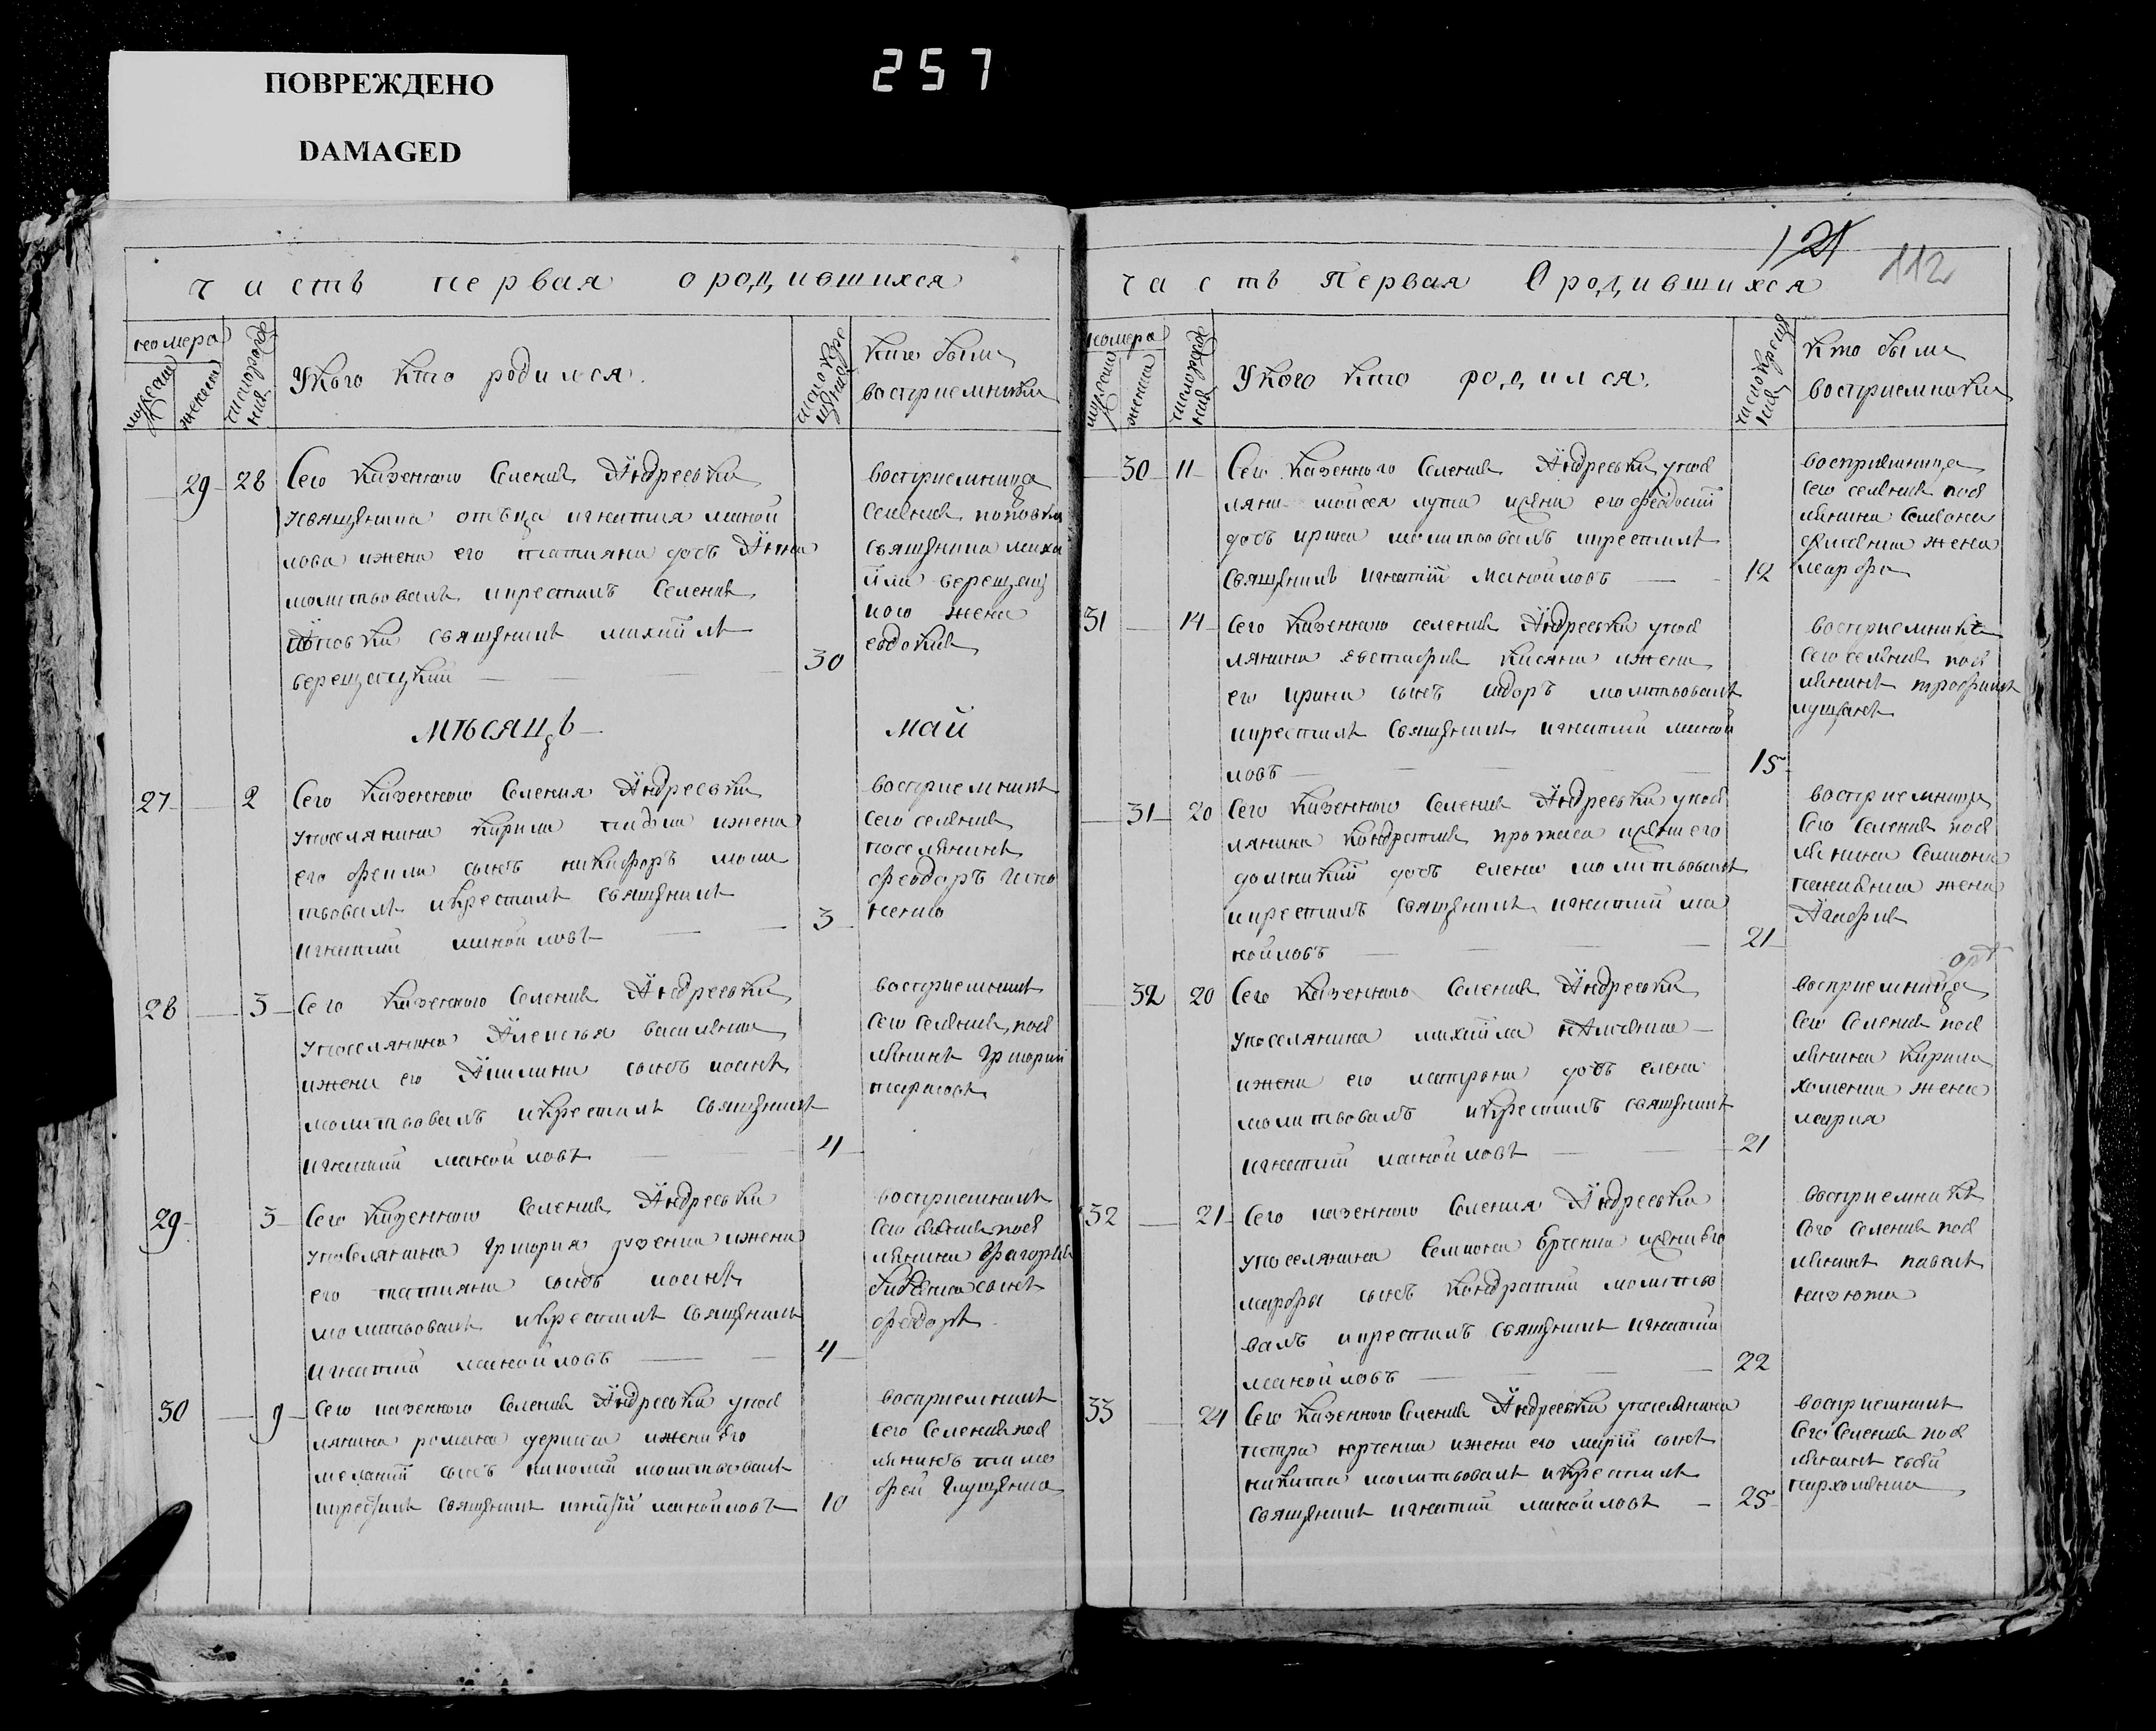 ПОВРЕЖДЕНО
DAMAGED
257
часть первая о родившихся
номера
мужеска
женска
число рожде
ния
У кого кто родился
число кре
щения
кто были
восприемники
29 28 Сего казенного Селения Андреевки
у священика отъца игнатия маной
лова и жена его татияна дочь Анна
молитвовалъ и крестилъ Селения
поповки священикъ михаилъ
верещацкий
30
восприемница
Селения поповки
священика миха
ила верещац
кого жена
евдокия
мѣсяцъ май
27 2 Сего казенного Селения Андреевки
у поселянина кирила и жена
его сынъ никифоръ моли
твовалъ и крестилъ священикъ
игнатий манойловъ
3
восприемникъ
Сего селения
поселянинъ
феодоръ
28 3 Сего казенного Селения Андреевки
у поселянина Алексея василенка
и жена его сынъ иоанъ
молитвовалъ и крестилъ священикъ
игнатий манойловъ
4
восприемникъ
Сего Селения посе
лянинъ Григорий
тарасовъ
29 3 Сего казенного Селения Андреевки
у поселянина Григория и жена
его татияна сынъ иоанъ
молитвовалъ и крестилъ священикъ
игнатий манойловъ
4
восприемникъ
Сего селения посе
лянина
сынъ
феодоръ
30 9 Сего казенного Селения Андреевки у посе
лянина романа и жени его
меланий сынъ николай молитвовалъ
и крестилъ священикъ игнатий манойловъ
10
восприемникъ
Сего Селения посе
лянинъ тимо
фей Глущенко
121
112
часть Первая О родившихся
номера
мужеска
женска
число рожде
ния
У кого кто родился.
число креще
ния
кто были
восприемники
30 11 Сего казенного Селения Андреевки у посе
ляни мойсея и жени его феодосий
дочь ирина молитвовалъ и крестилъ
священикъ игнатий манойловъ
12
восприемница
Сего селения посе
лянина Симона
жена
марфа
31 14 Сего казенного селения Андреевки у посе
лянина Евстафия и жена
его ирина сынъ молитвовалъ
и крестилъ священикъ игнатий маной
ловъ
15
восприемникъ
Сего селения посе
лянинъ трофимъ
31 20 Сего казенного Селения Андреевки у посе
лянина кондратия и жени его
домникий дочь елена молитвовалъ
и крестилъ священикъ игнатий ма
нойловъ
21
восприемница
Сего Селения посе
лянина Симиона
жена
Агафия
32 20 Сего казенного Селения Андреевки
у поселянина михаила
и жена его матрона дочь елена
молитвовалъ и крестилъ священикъ
игнатий манойловъ
21
восприемница
Сего Селения посе
лянина кирила
хоменка жена
мария
32 21 Сего казенного Селения Андреевки
у поселянина Симиона и жени его
марфы сынъ кондратий молитво
валъ и крестилъ священикъ игнатий
манойловъ
22
восприемникъ
Сего Селения посе
лянинъ павелъ
33 24 Сего казенного Селения Андреевки у поселянина
петра юрченка и жени его марий сынъ
никита молитвовалъ и крестилъ
священикъ игнатий манойловъ
25
восприемникъ
Сего Селения посе
лянинъ савва
пархоменко